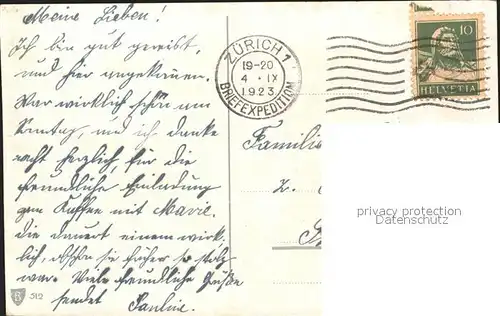 Meine Lieben!
Ich bin gut gereist,
und hier angekommen.
War wirklich schön am
Sonntag, und ich danke
recht herzlich, für die
freundliche Einladung
zum Kaffee mit Marie.
die dauert einem wirk-
lich, obschon sie früher so stolz
war. Viele freundliche Grüße
sendet Pauline.
512
ZÜRICH 1
19-20
4 · IX
1923
BRIEFEXPEDITION
10
HELVETIA
Familie
privacy protection
Datenschutz